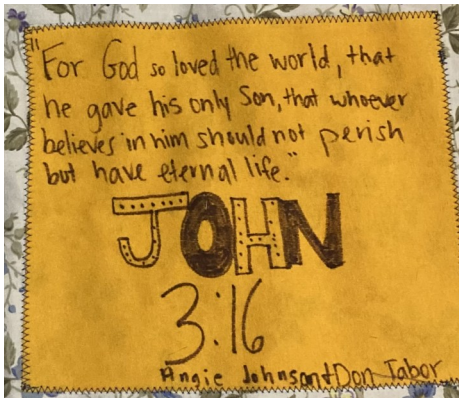 "For God so loved the world, that
he gave his only Son, that whoever
believes in him should not perish
but have eternal life."
JOHN
3:16
Angie Johnson+Don Tabor